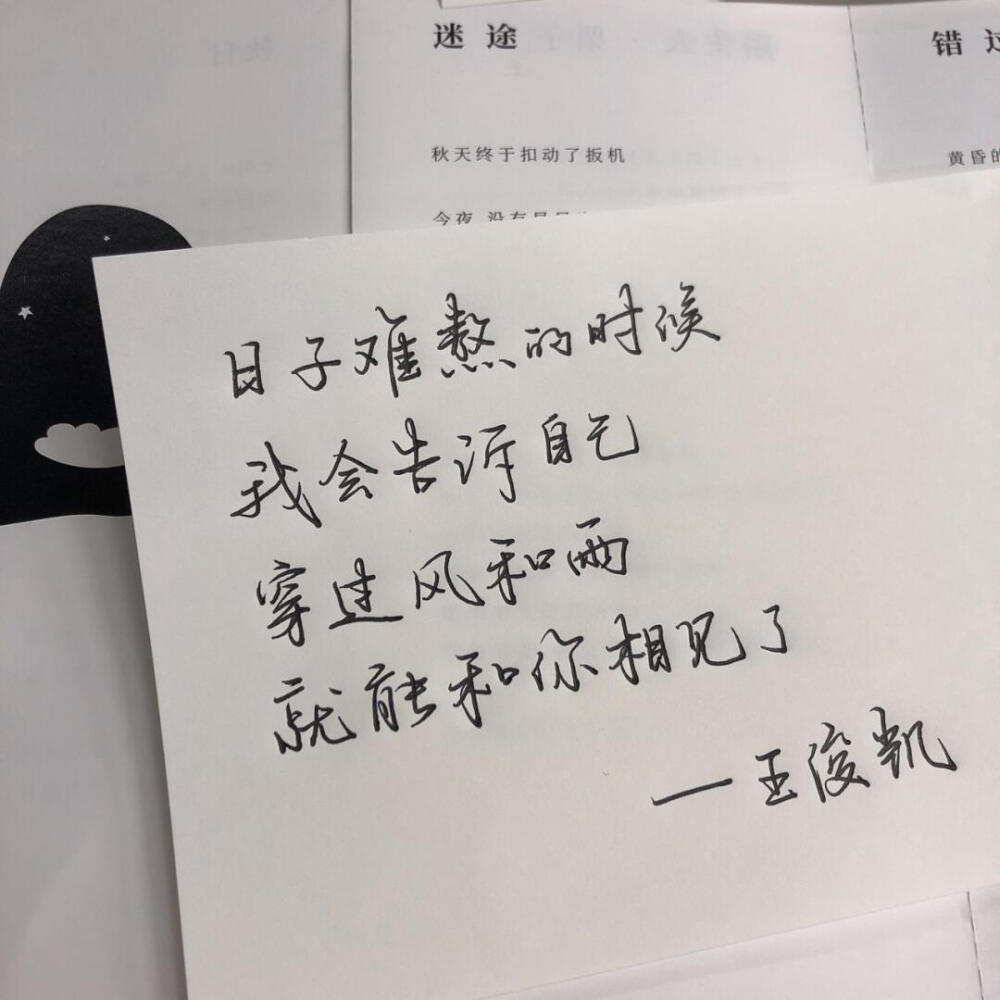 迷途
错过
秋天终于扣动了扳机
黄昏的
今夜 没有星星
日子难熬的时候
我会告诉自己
穿过风和雨
就能和你相见了
—王俊凯